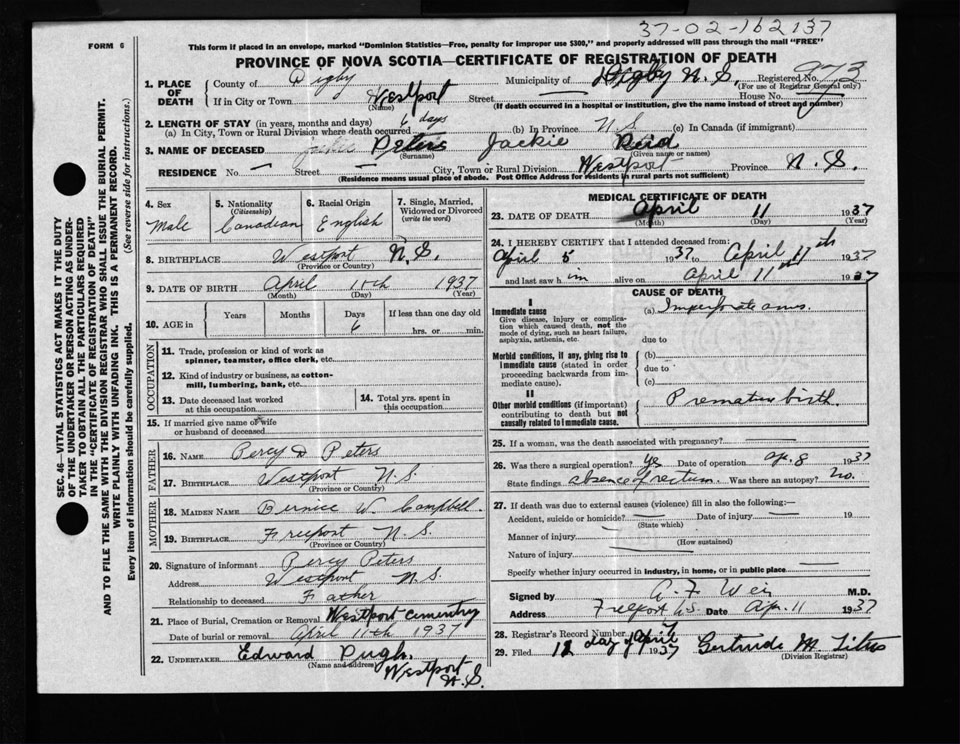 37-02-162137
FORM 6
This form if placed in an envelope, marked "Dominion Statistics—Free, penalty for improper use $300," and properly addressed will pass through the mail "FREE"
PROVINCE OF NOVA SCOTIA—CERTIFICATE OF REGISTRATION OF DEATH
1. PLACE OF DEATH County of Digby Municipality of Digby N. S. Registered No. 973
(For use of Registrar General only)
If in City or Town Westport Street House No.
(Name) (If death occurred in a hospital or institution, give the name instead of street and number)
2. LENGTH OF STAY (in years, months and days)
(a) In City, Town or Rural Division where death occurred 6 days (b) In Province N S (c) In Canada (if immigrant)
3. NAME OF DECEASED Peters Jackie Reid
(Surname) (Given name or names)
RESIDENCE No. — Street — City, Town or Rural Division Westport Province N. S.
(Residence means usual place of abode. Post Office Address for residents in rural parts not sufficient)
4. Sex Male
5. Nationality (Citizenship) Canadian
6. Racial Origin English
7. Single, Married, Widowed or Divorced (write the word)
8. BIRTHPLACE Westport N. S.
(Province or Country)
9. DATE OF BIRTH April 1937
(Month) (Day) (Year)
10. AGE in Years Months Days 6 If less than one day old
hrs. or min.
OCCUPATION
11. Trade, profession or kind of work as spinner, teamster, office clerk, etc.
12. Kind of industry or business, as cotton-mill, lumbering, bank, etc.
13. Date deceased last worked at this occupation
14. Total yrs. spent in this occupation
15. If married give name of wife or husband of deceased
FATHER
16. NAME Percy D Peters
17. BIRTHPLACE Westport N S
(Province or Country)
MOTHER
18. MAIDEN NAME Bernice W Campbell
19. BIRTHPLACE Freeport N S.
(Province or Country)
20. Signature of informant Percy Peters
Address Westport N S.
Relationship to deceased Father
21. Place of Burial, Cremation or Removal Westport cementry
Date of burial or removal April 11th 1937
22. UNDERTAKER Edward Pugh
(Name and address) Westport
N. S.
MEDICAL CERTIFICATE OF DEATH
23. DATE OF DEATH April 11 1937
(Month) (Day) (Year)
24. I HEREBY CERTIFY that I attended deceased from:
April 5 1937 to April 11th 1937
and last saw him alive on April 11th 1937
CAUSE OF DEATH
I
Immediate cause
Give disease, injury or complication which caused death, not the mode of dying, such as heart failure, asphyxia, asthenia, etc.
(a) Imperforate anus
due to
Morbid conditions, if any, giving rise to immediate cause (stated in order proceeding backwards from immediate cause).
(b)
due to
(c)
II
Other morbid conditions (if important) contributing to death but not causally related to immediate cause.
Premature birth.
25. If a woman, was the death associated with pregnancy?
26. Was there a surgical operation? yes Date of operation Ap. 8 1937
State findings absence of rectum. Was there an autopsy? No.
27. If death was due to external causes (violence) fill in also the following:—
Accident, suicide or homicide? Date of injury 19
(State which)
Manner of injury
(How sustained)
Nature of injury
Specify whether injury occurred in industry, in home, or in public place
Signed by A. F Weir M.D.
Address Freeport N.S. Date Ap. 11 1937
28. Registrar's Record Number 7
29. Filed 12 day of April 1937 Gertrude M. Titus
(Division Registrar)
SEC. 46—VITAL STATISTICS ACT MAKES IT THE DUTY
OF THE UNDERTAKER OR PERSON ACTING AS UNDER-
TAKER TO OBTAIN ALL THE PARTICULARS REQUIRED
IN THE "CERTIFICATE OF REGISTRATION OF DEATH"
AND TO FILE THE SAME WITH THE DIVISION REGISTRAR WHO SHALL ISSUE THE BURIAL PERMIT.
WRITE PLAINLY WITH UNFADING INK. THIS IS A PERMANENT RECORD.
Every item of information should be carefully supplied. (See reverse side for instructions.)